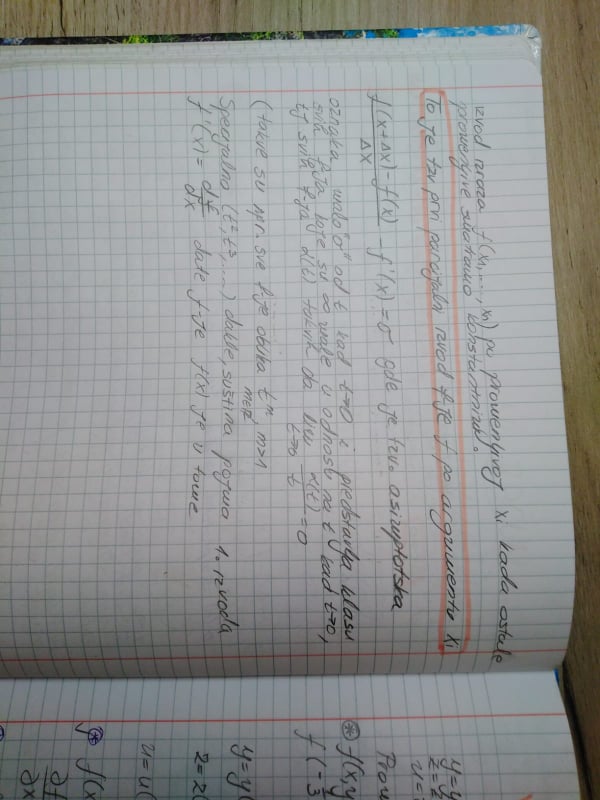 izvod izraza f(x₁,...,xₙ) po promenljivoj xᵢ kada ostale
promenljive smatramo konstantnim.
To je tzv prvi parcijalni izvod f-je f po argumentu xᵢ
f(x+Δx)-f(x)/Δx - f'(x) = σ gde je tzv. asimptotska
oznaka malo "σ" od t kad t→0 i predstavlja klasu
svih f-ja koje su ∞ male u odnosu na t kad t→0,
tj svih f-ja α(t) takvih da lim t→0 α(t)/t = 0
(takve su npr. sve f-je oblika tᵐ, m>1
m∈R
Specijalno (t², t³, ...) dakle, suština pojmа 1. izvoda
f'(x) = df/dx date f-je f(x) je u tome
y=y
z=z
u=
Prom
* f(x,y
f(-y/3
y=y(
z=z(
u=u(
* f(x
∂f
∂x